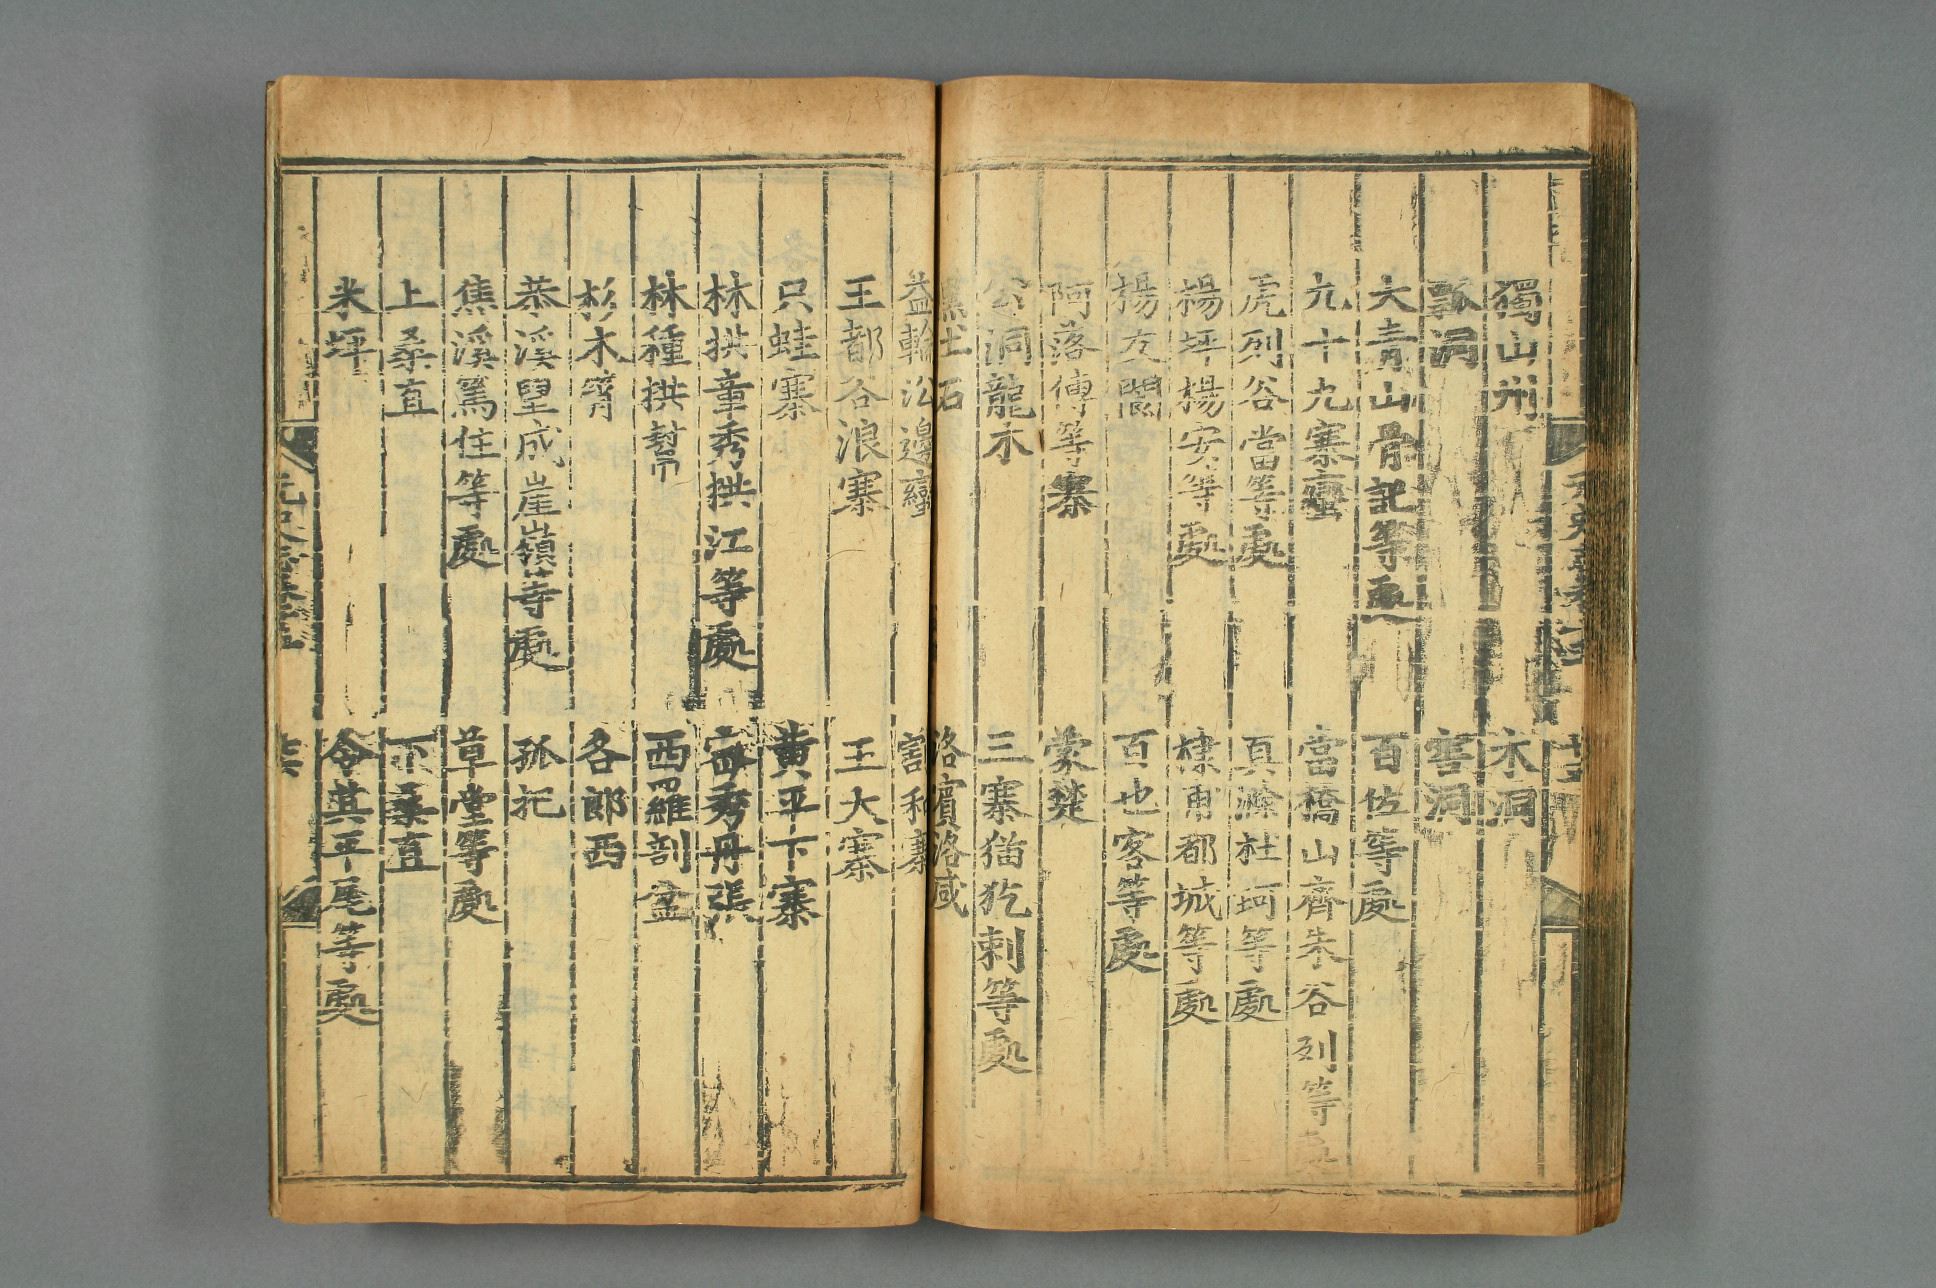 獨山州 木洞
瓢洞 窖洞
大青山骨記等處 百佐等處
九十九寨蠻 當橋山齊朱谷列等處
虎列谷當等處 真滁杜珂等處
楊坪楊安等處 棣甫都城等處
楊友閬 百也客等處
阿落傳等寨 蒙楚
公洞龍木 三寨猫犵剌等處
黑土石 洛賓洛咸
益輪沿邊蠻 割和寨
王都谷浪寨 王大寨
只蛙寨 黄平下寨
林拱章秀拱江等處 密秀丹張
林種拱幫 西羅剖盆
杉木箐 各郎西
恭溪望成崖嶺等處 孤把
焦溪篤住等處 草堂等處
上桑直 下桑直
米坪 令其平尾等處